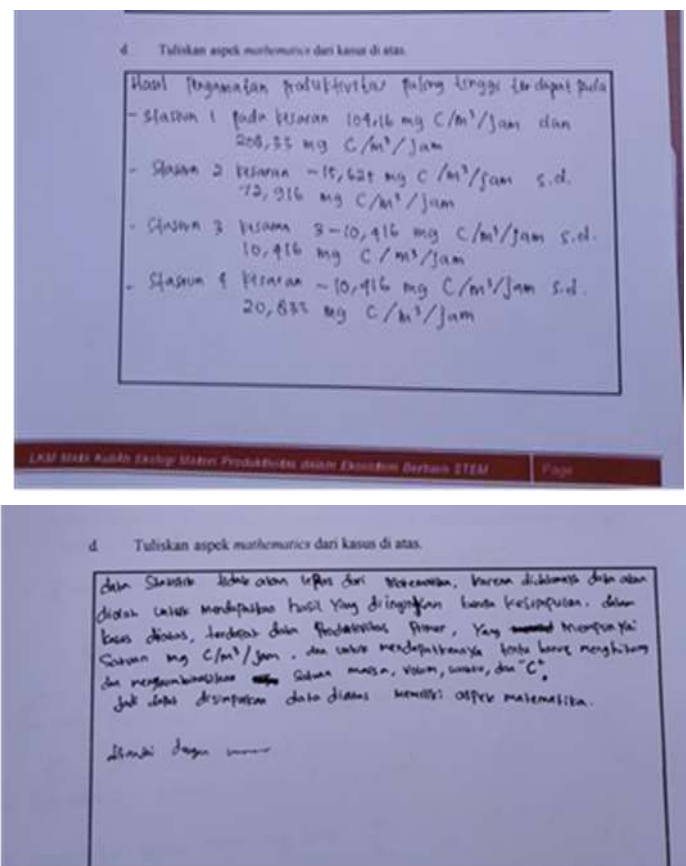 d. Tuliskan aspek mathematics dari kasus di atas.
Hasil Pengamatan produktivitas paling tinggi terdapat pada
- Stasiun 1 pada kisaran 104,16 mg C/m³/jam dan
208,33 mg C/m³/jam
- Stasiun 2 kisaran -15,625 mg C/m³/jam s.d.
72,916 mg C/m³/jam
- Stasiun 3 kisaran 3-10,416 mg C/m³/jam s.d.
10,416 mg C/m³/jam
- Stasiun 4 kisaran -10,416 mg C/m³/jam s.d.
20,833 mg C/m³/jam
LKM Mata Kuliah Ekologi Materi Produktivitas dalam Ekosistem Berbasis STEM Page
d. Tuliskan aspek mathematics dari kasus di atas.
data Statistik tidak akan lepas dari Matematika, karena data akan
diolah untuk mendapatkan hasil yang diinginkan kesimpulan. dalam
kasus diatas, terdapat data Produktivitas Primer, Yang mempunyai
Satuan mg C/m³/jam, dan untuk mendapatkannya tentu harus menghitung
dan mengkombinasikan Satuan massa, volum, waktu, dan "C".
Jadi dapat disimpulkan data diatas memiliki aspek matematika.
ditandai dengan